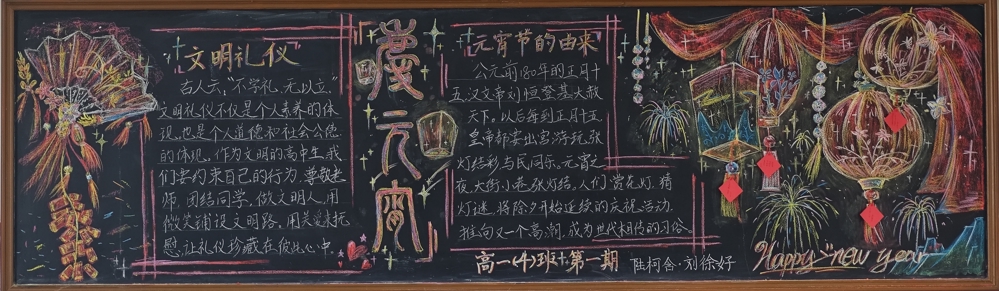 文明礼仪
古人云，"不学礼，无以立"
文明礼仪不仅是个人素养的体
现，也是个人道德和社会公德
的体现。作为文明的高中生，我
们要约束自己的行为，尊敬老
师，团结同学，做文明人，用
微笑铺设文明路，用关爱来抚
慰，让礼仪珍藏在彼此心中。
庆元宵
元宵节的由来
公元前180年的正月十
五，汉文帝刘恒登基大赦
天下。以后每到正月十五
皇帝都要出宫游玩，张
灯结彩与民同乐。元宵之
夜，大街小巷张灯结，人们赏花灯，猜
灯谜，将除夕开始延续的庆祝活动，
推向又一个高潮，成为世代相传的习俗。
高一（4）班 第一期
陆柯含·刘徐好
Happy new year